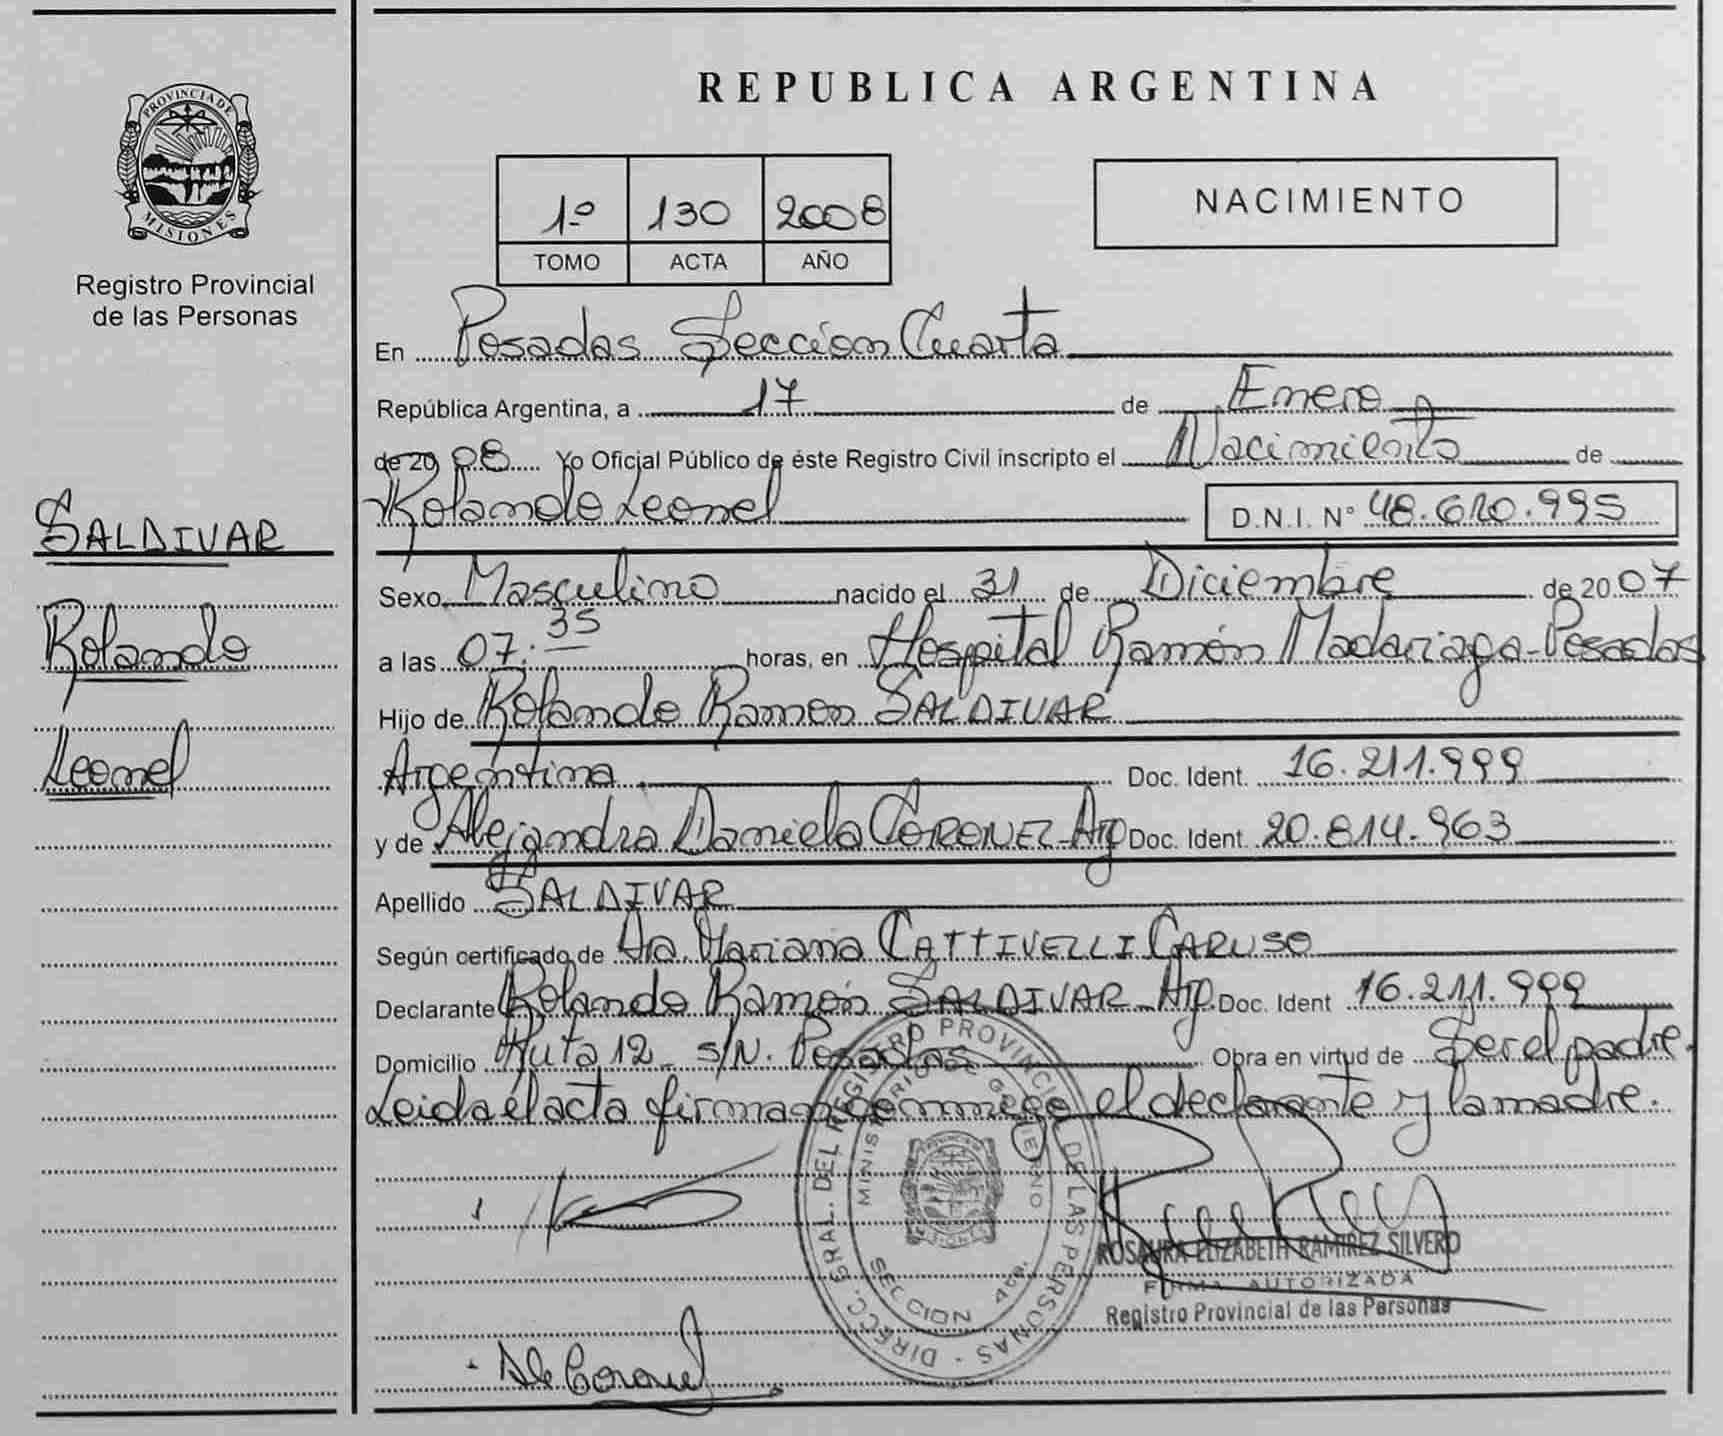 REPUBLICA ARGENTINA
PROVINCIA DE
MISIONES
Registro Provincial
de las Personas
1º 130 2008
TOMO ACTA AÑO
NACIMIENTO
SALDIVAR
Rolando
Leonel
En Posadas Seccion Cuarta
República Argentina, a 17 de Enero
de 2008 Yo Oficial Público de éste Registro Civil inscripto el Nacimiento de
Rolando Leonel D.N.I. Nº 48.610.995
Sexo Masculino nacido el 31 de Diciembre de 2007
a las 07:35 horas, en Hospital Ramón Madariaga-Posadas
Hijo de Rolando Ramon SALDIVAR
Argentina Doc. Ident. 16.211.999
y de Alejandra Daniela CORONEL-Arg Doc. Ident. 20.814.963
Apellido SALDIVAR
Según certificado de Dra. Mariana CATTIVELLI CARUSO
Declarante Rolando Ramón SALDIVAR-Arg. Doc. Ident 16.211.999
Domicilio Ruta 12 s/N. Posadas Obra en virtud de Ser el padre.
Leida el acta firman conmigo el declarante y la madre.
DIRECC. GRAL. DEL REGISTRO PROVINCIAL DE LAS PERSONAS
MINISTERIO DE GOBIERNO
SECCION 4ta.
ROSAURA ELIZABETH RAMIREZ SILVERO
FIRMA AUTORIZADA
Registro Provincial de las Personas
Ale Coronel